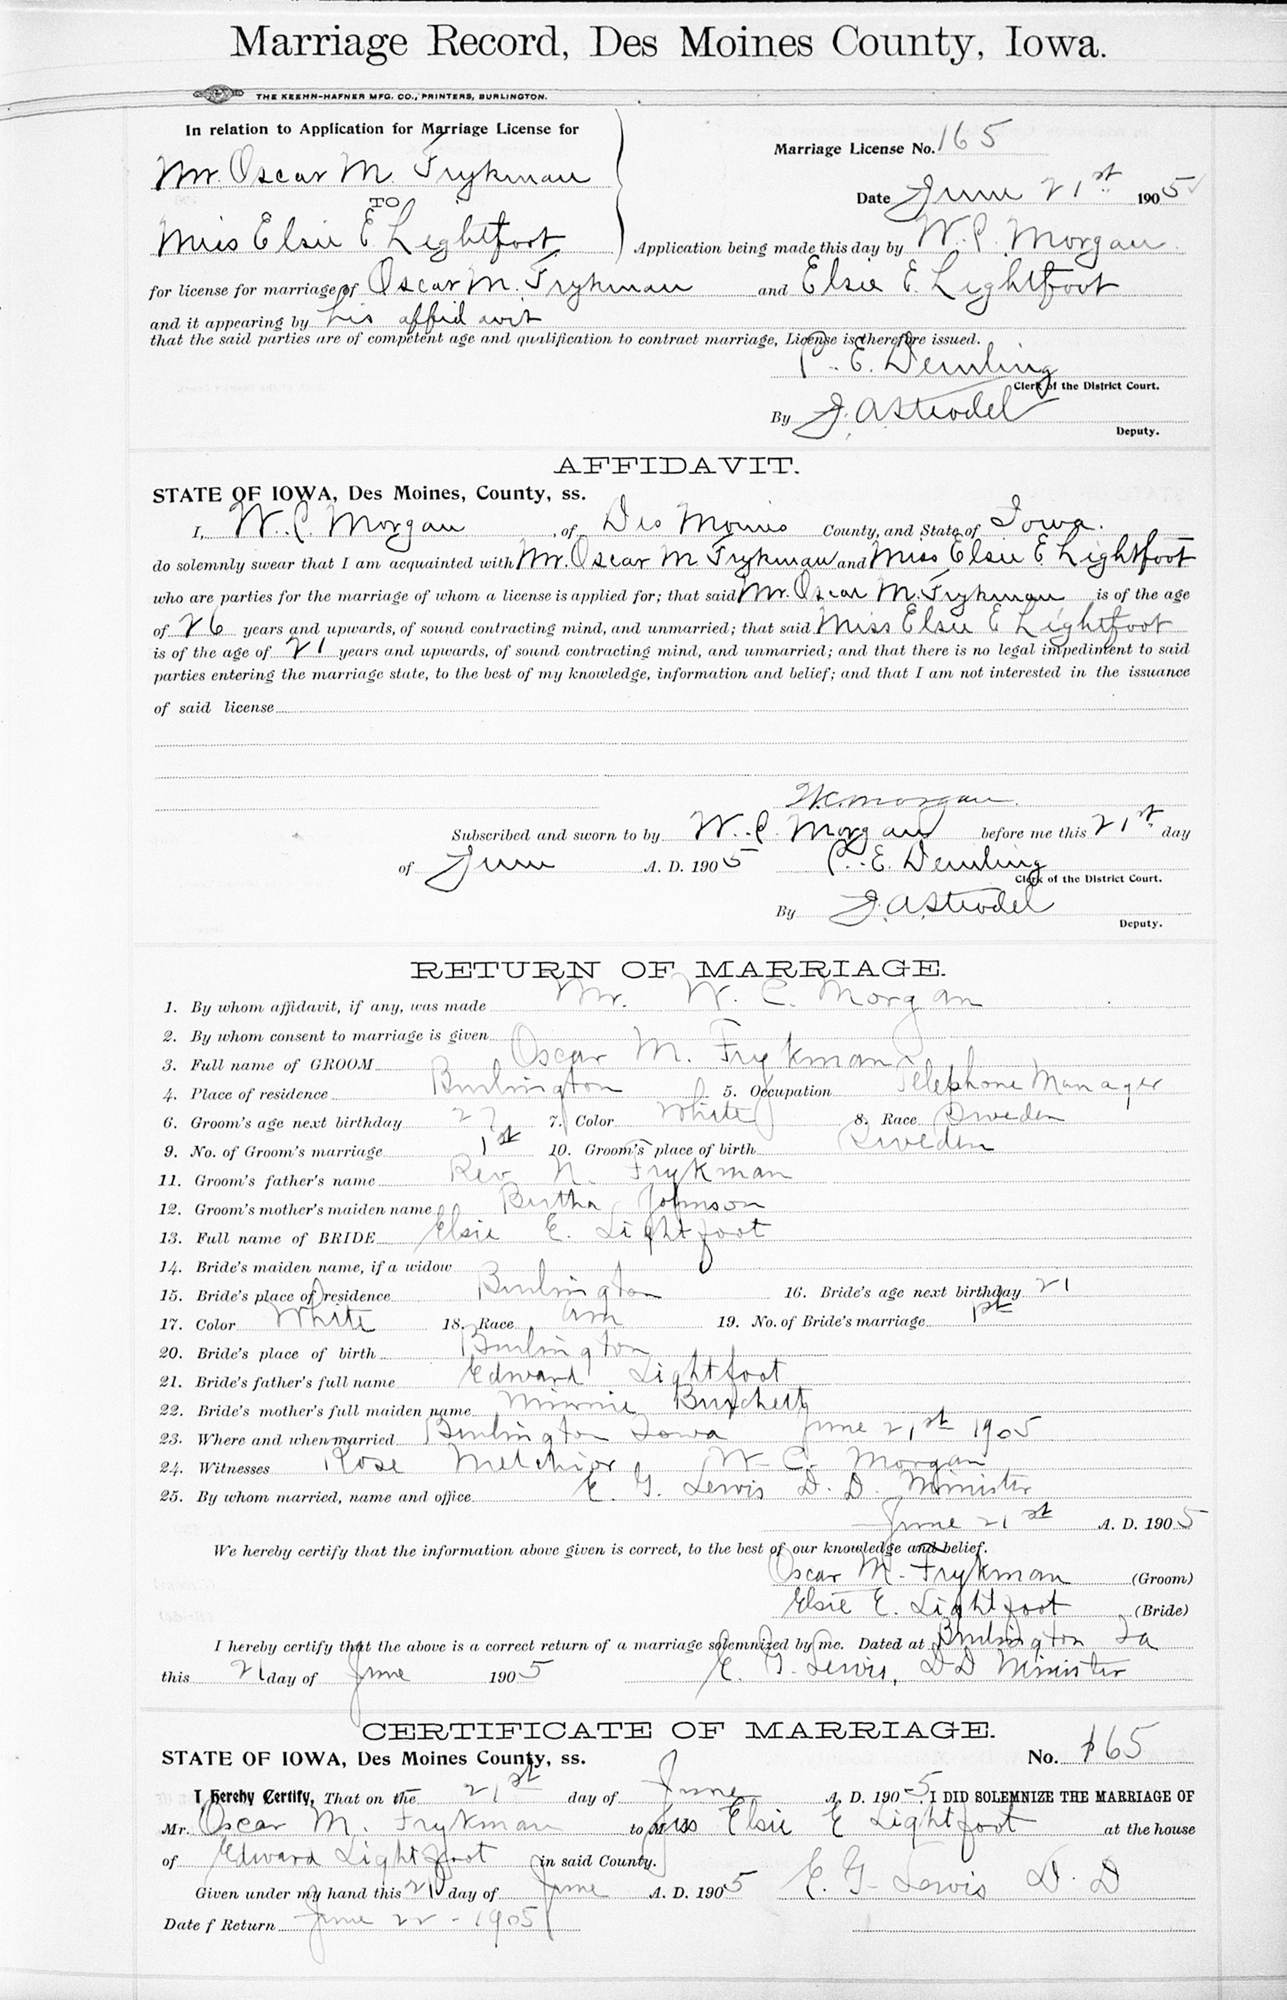 Marriage Record, Des Moines County, Iowa.
THE KEEHN-HAFNER MFG. CO., PRINTERS, BURLINGTON.
In relation to Application for Marriage License for
Mr. Oscar M Frykman
TO
Miss Elsie E Lightfoot
Marriage License No. 165
Date June 21st 1905
Application being made this day by W. C. Morgan
for license for marriage of Oscar M. Frykman and Elsie E. Lightfoot
and it appearing by his affidavit
that the said parties are of competent age and qualification to contract marriage, License is therefore issued.
C. E. Demling
Clerk of the District Court.
By J. A Strodel
Deputy.
AFFIDAVIT.
STATE OF IOWA, Des Moines, County, ss.
I, W. C. Morgan, of Des Moines County, and State of Iowa.
do solemnly swear that I am acquainted with Mr. Oscar M Frykman and Miss Elsie E Lightfoot
who are parties for the marriage of whom a license is applied for; that said Mr. Oscar M. Frykman is of the age
of 26 years and upwards, of sound contracting mind, and unmarried; that said Miss Elsie E Lightfoot
is of the age of 21 years and upwards, of sound contracting mind, and unmarried; and that there is no legal impediment to said
parties entering the marriage state, to the best of my knowledge, information and belief; and that I am not interested in the issuance
of said license
W. C. Morgan.
Subscribed and sworn to by W. C. Morgan before me this 21st day
of June A. D. 1905 C. E. Demling
Clerk of the District Court.
By J. A Strodel
Deputy.
RETURN OF MARRIAGE.
1. By whom affidavit, if any, was made Mr. W. C. Morgan
2. By whom consent to marriage is given
3. Full name of GROOM Oscar M. Frykman
4. Place of residence Burlington 5. Occupation Telephone Manager
6. Groom's age next birthday 27 7. Color White 8. Race Sweden
9. No. of Groom's marriage 1st 10. Groom's place of birth Sweden
11. Groom's father's name Rev N. Frykman
12. Groom's mother's maiden name Bertha Johnson
13. Full name of BRIDE Elsie E. Lightfoot
14. Bride's maiden name, if a widow
15. Bride's place of residence Burlington 16. Bride's age next birthday 21
17. Color White 18. Race Am 19. No. of Bride's marriage 1st
20. Bride's place of birth Burlington
21. Bride's father's full name Edward Lightfoot
22. Bride's mother's full maiden name Minnie Burchett
23. Where and when married Burlington Iowa June 21st 1905
24. Witnesses Rose Melchior, W C. Morgan
25. By whom married, name and office E. G. Lewis D. D. Minister
June 21st A. D. 1905
We hereby certify that the information above given is correct, to the best of our knowledge and belief.
Oscar M. Frykman (Groom)
Elsie E. Lightfoot (Bride)
I hereby certify that the above is a correct return of a marriage solemnized by me. Dated at Burlington Ia
this 21 day of June 1905 E. G. Lewis, D D Minister
CERTIFICATE OF MARRIAGE.
STATE OF IOWA, Des Moines County, ss. No. 165
I Hereby Certify, That on the 21st day of June A. D. 1905. I DID SOLEMNIZE THE MARRIAGE OF
Mr. Oscar M. Frykman to Miss Elsie E Lightfoot at the house
of Edward Lightfoot in said County.
Given under my hand this 21 day of June A. D. 1905 E. G. Lewis D. D
Date f Return June 22 - 1905